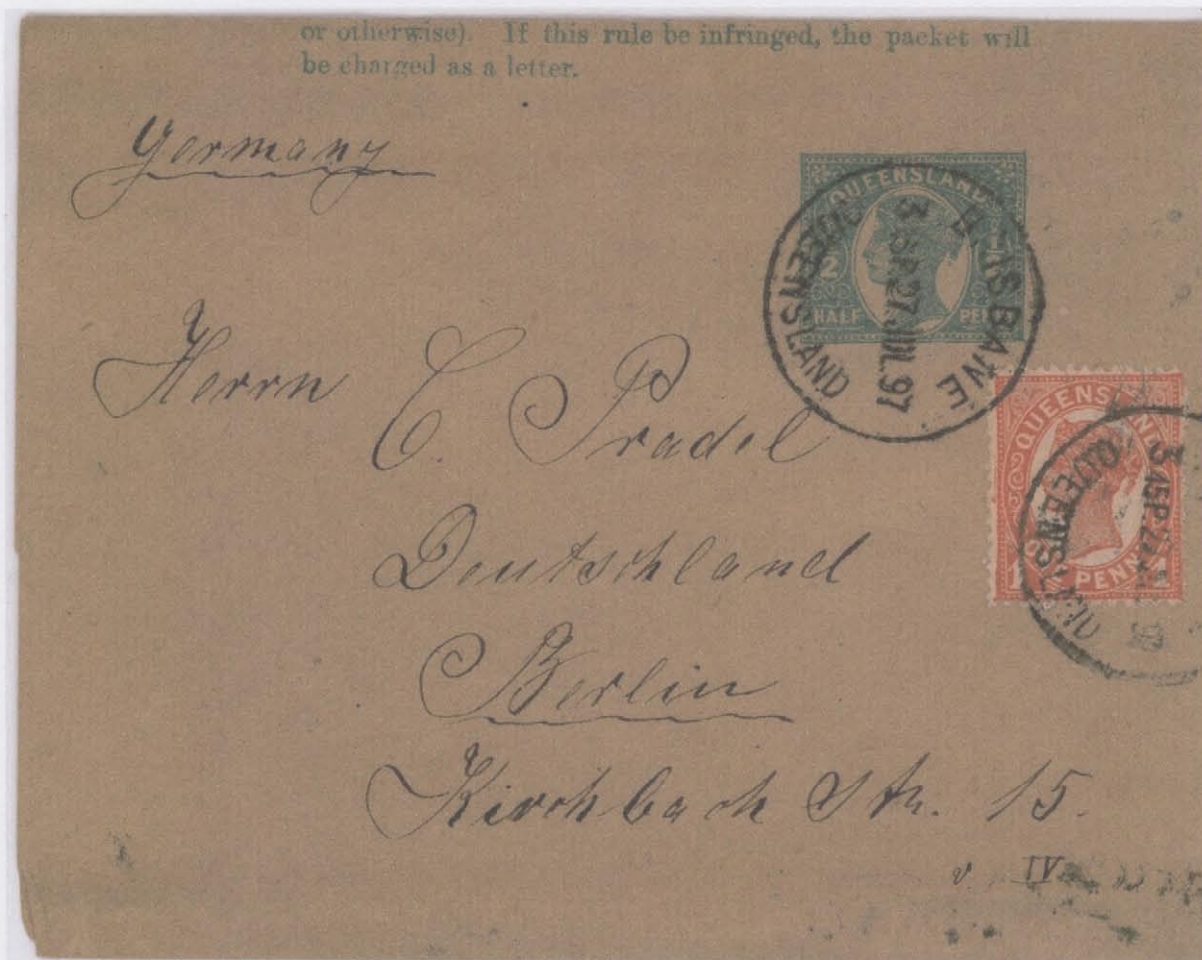 or otherwise). If this rule be infringed, the packet will
be charged as a letter.
Germany
QUEENSLAND
HALF PENNY
BRISBANE
3.45P.27.JUL.97
QUEENSLAND
Herrn C. Pradel
QUEENSLAND
PENNY
3.45P.27
QUEENSLAND
Deutschland
Berlin
Kirchbach Str. 15.
v. IV